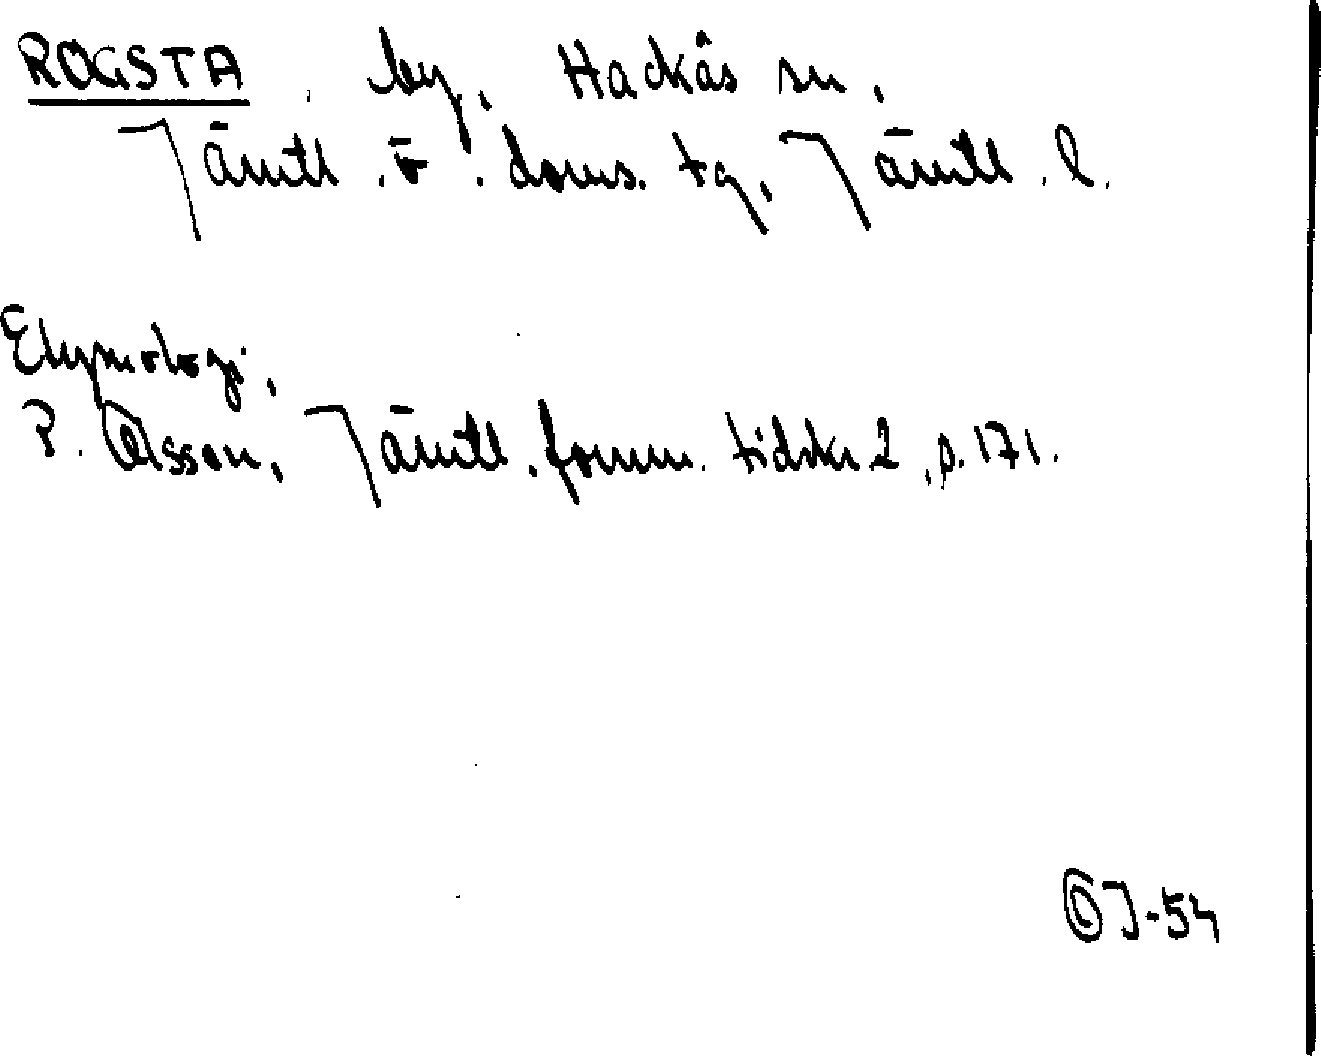 ROGSTA, by, Hackås sn,
Jämtl. ö. doms. tg, Jämtl. l.
Etymologi,
P. Olsson, Jämtl. fornm. tidskr 2, s. 171.
OJ-54